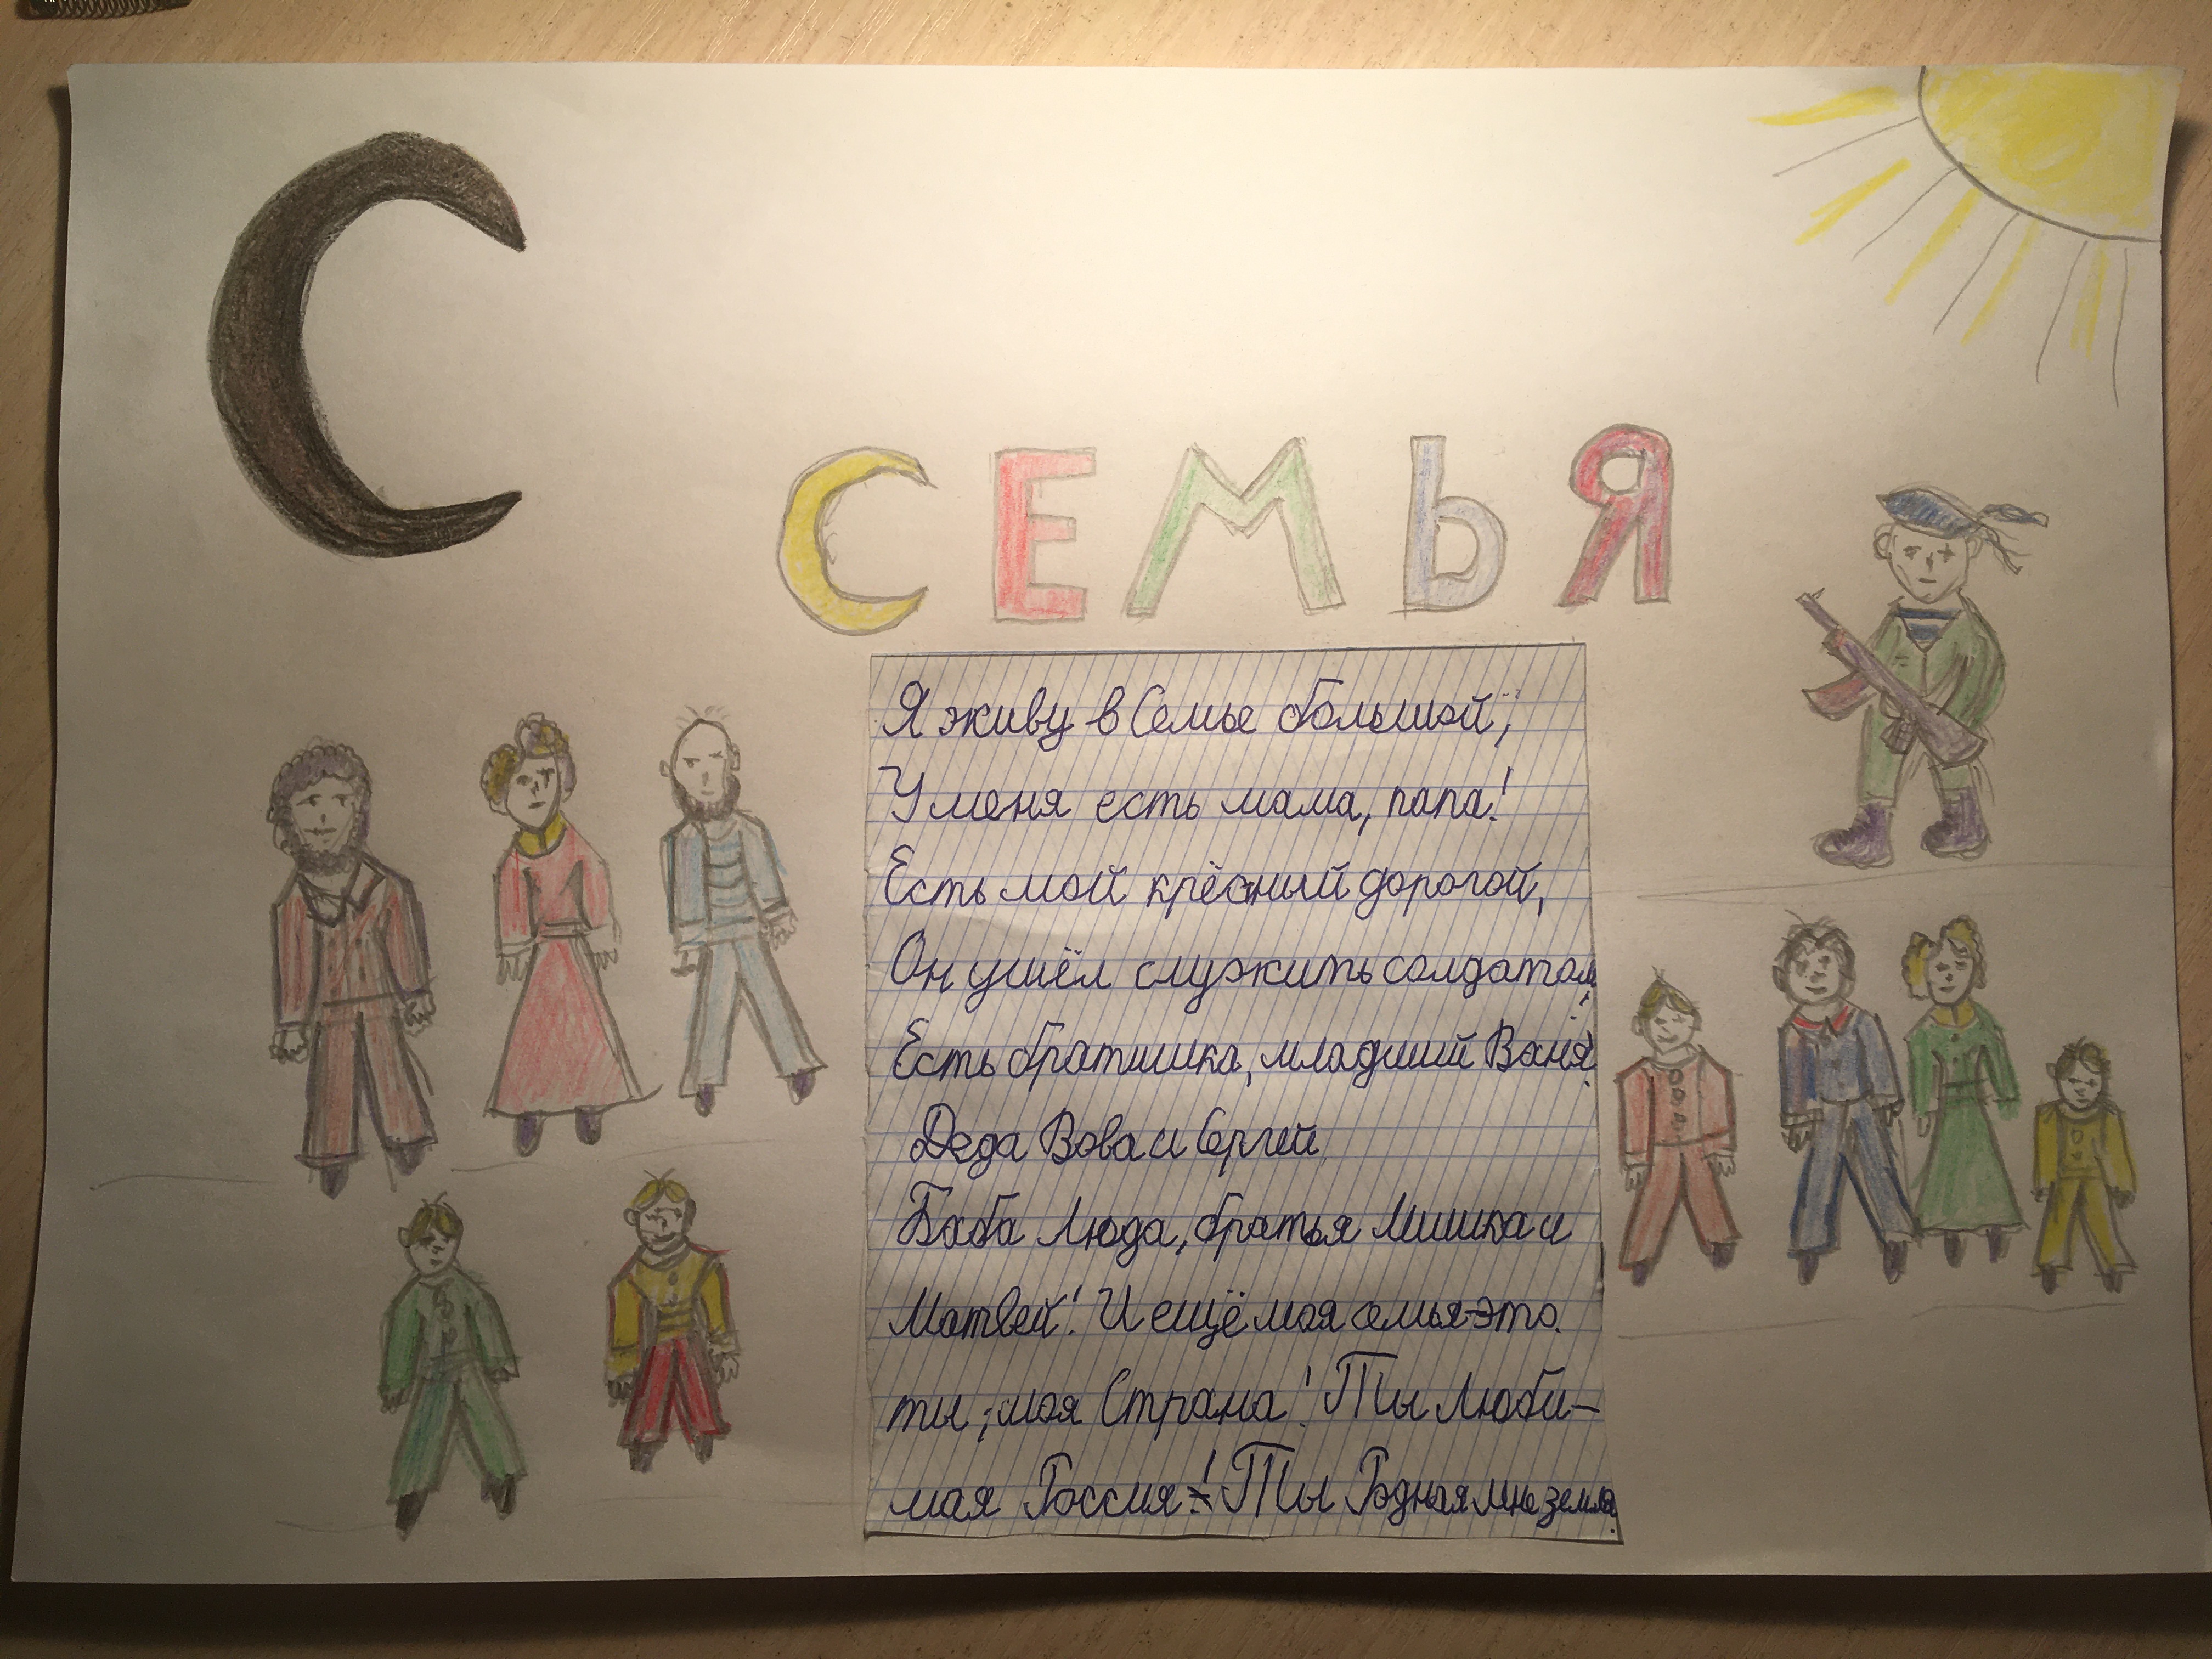 С
СЕМЬЯ
Я живу в Семье большой,
У меня есть мама, папа!
Есть мой крёсный дорогой,
Он ушёл служить солдатом!
Есть братишка, младший Ваня!
Деда Вова и Сергей
Баба Люда, братья Мишка и
Матвей! И ещё моя семья-это
ты, моя Страна! Ты Люби-
мая Россия! Ты Родная мне земля!